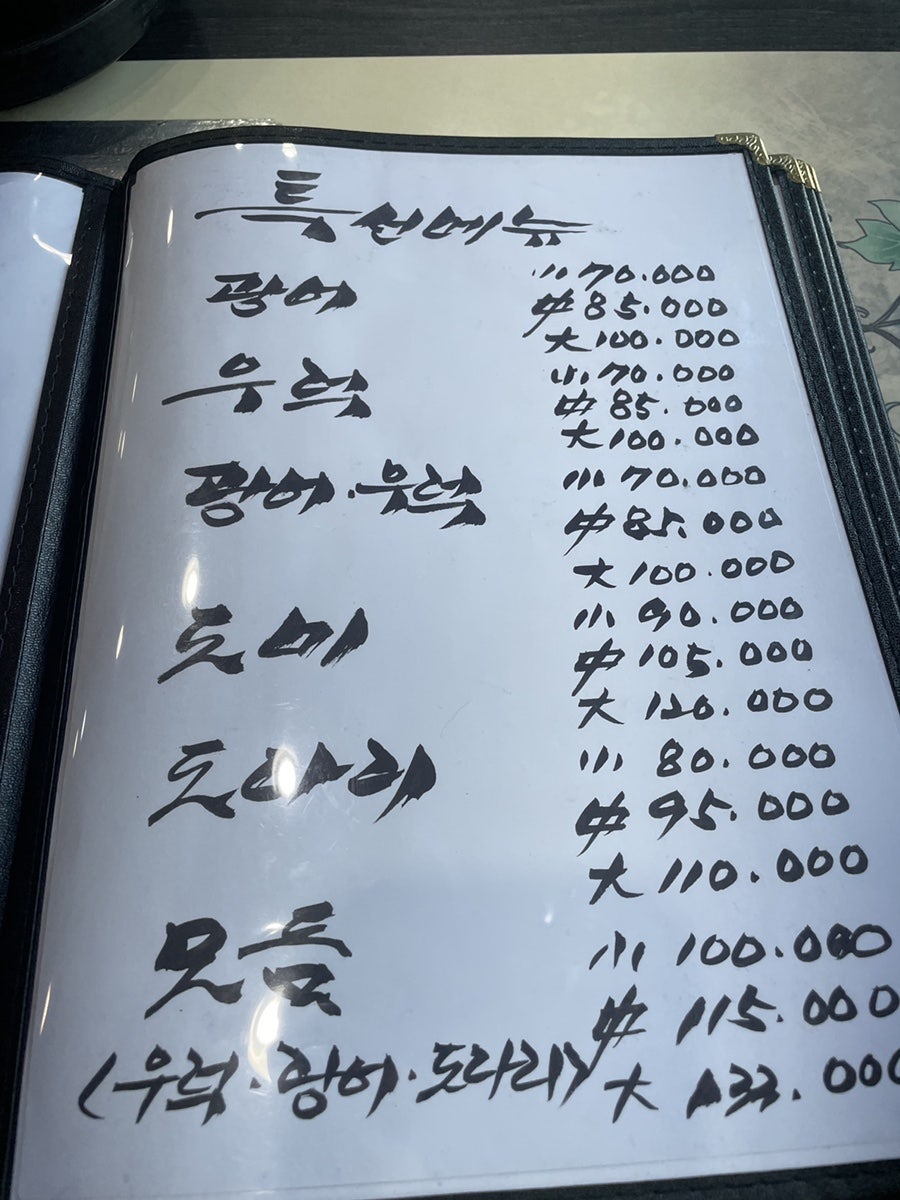 특선메뉴
광어 小 70.000
中 85.000
大 100.000
우럭 小 70.000
中 85.000
大 100.000
광어·우럭 小 70.000
中 85.000
大 100.000
도미 小 90.000
中 105.000
大 120.000
도다리 小 80.000
中 95.000
大 110.000
모듬 小 100.000
中 115.000
(우럭·광어·도다리) 大 133.000